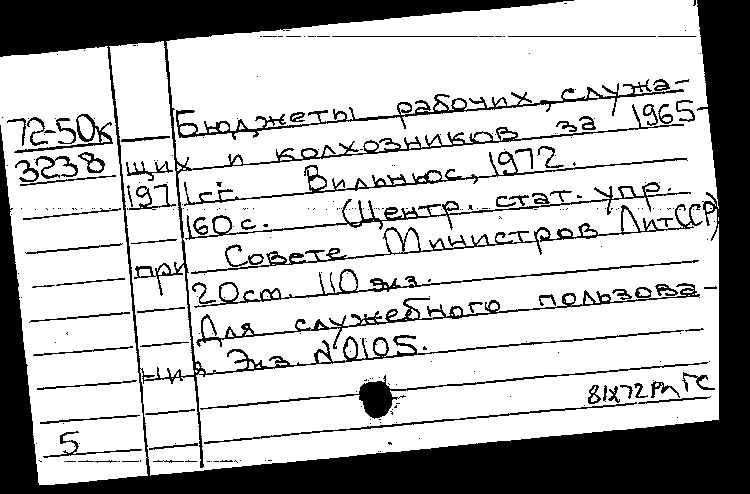 72-50к
3238
Бюджеты рабочих, служа-
щих и колхозников за 1965-
1971 гг. Вильнюс, 1972.
160 с. (Центр. стат. упр.
при Совете Министров ЛитССР)
20 см. 110 экз.
Для служебного пользова-
ния. Экз. №0105.
5